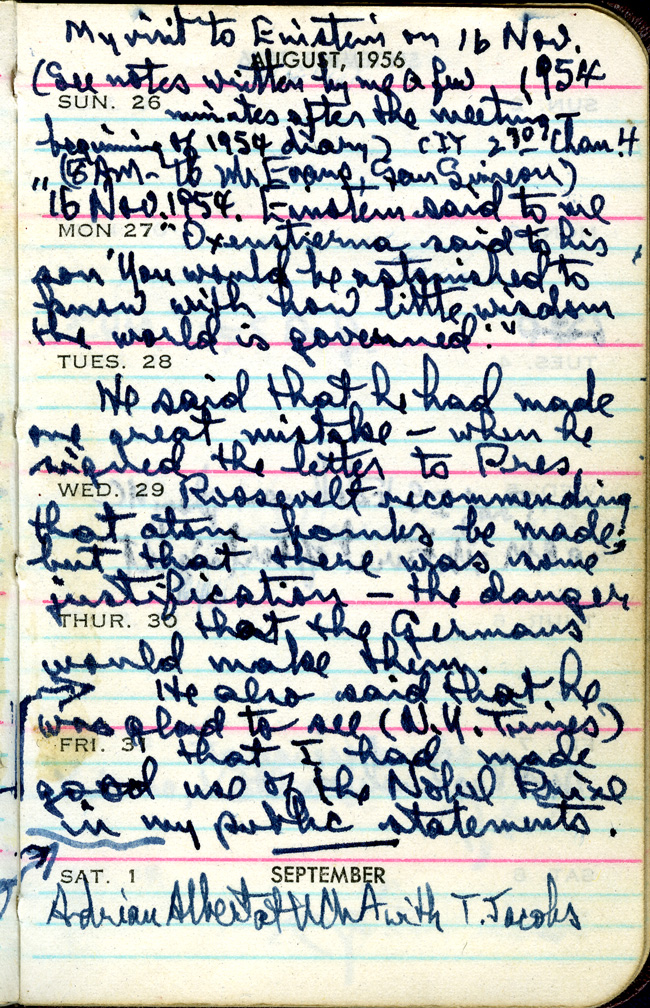 My visit to Einstein on 16 Nov.
AUGUST, 1956
(See notes written by me a few 1954
SUN. 26
minutes after the meeting
beginning of 1954 diary) CIT 2 30 Chan. 4
8 AM - To Mr Evans, San Simeon)
"16 Nov. 1954. Einstein said to me
MON 27
"Oxenstierna said to his
son 'You would be astonished to
know with how little wisdom
the world is governed'."
TUES. 28
He said that he had made
one great mistake - when he
signed the letter to Pres.
WED. 29
Roosevelt recommending
that atom bombs be made;
but that there was some
justification - the danger
THUR. 30
that the Germans
would make them.
He also said that he
was glad to see (N.Y. Times)
FRI. 31
that I had made
good use of the Nobel Prize
in my public statements.
SAT. 1 SEPTEMBER
Adrian Albert at UCLA with T. Jacobs